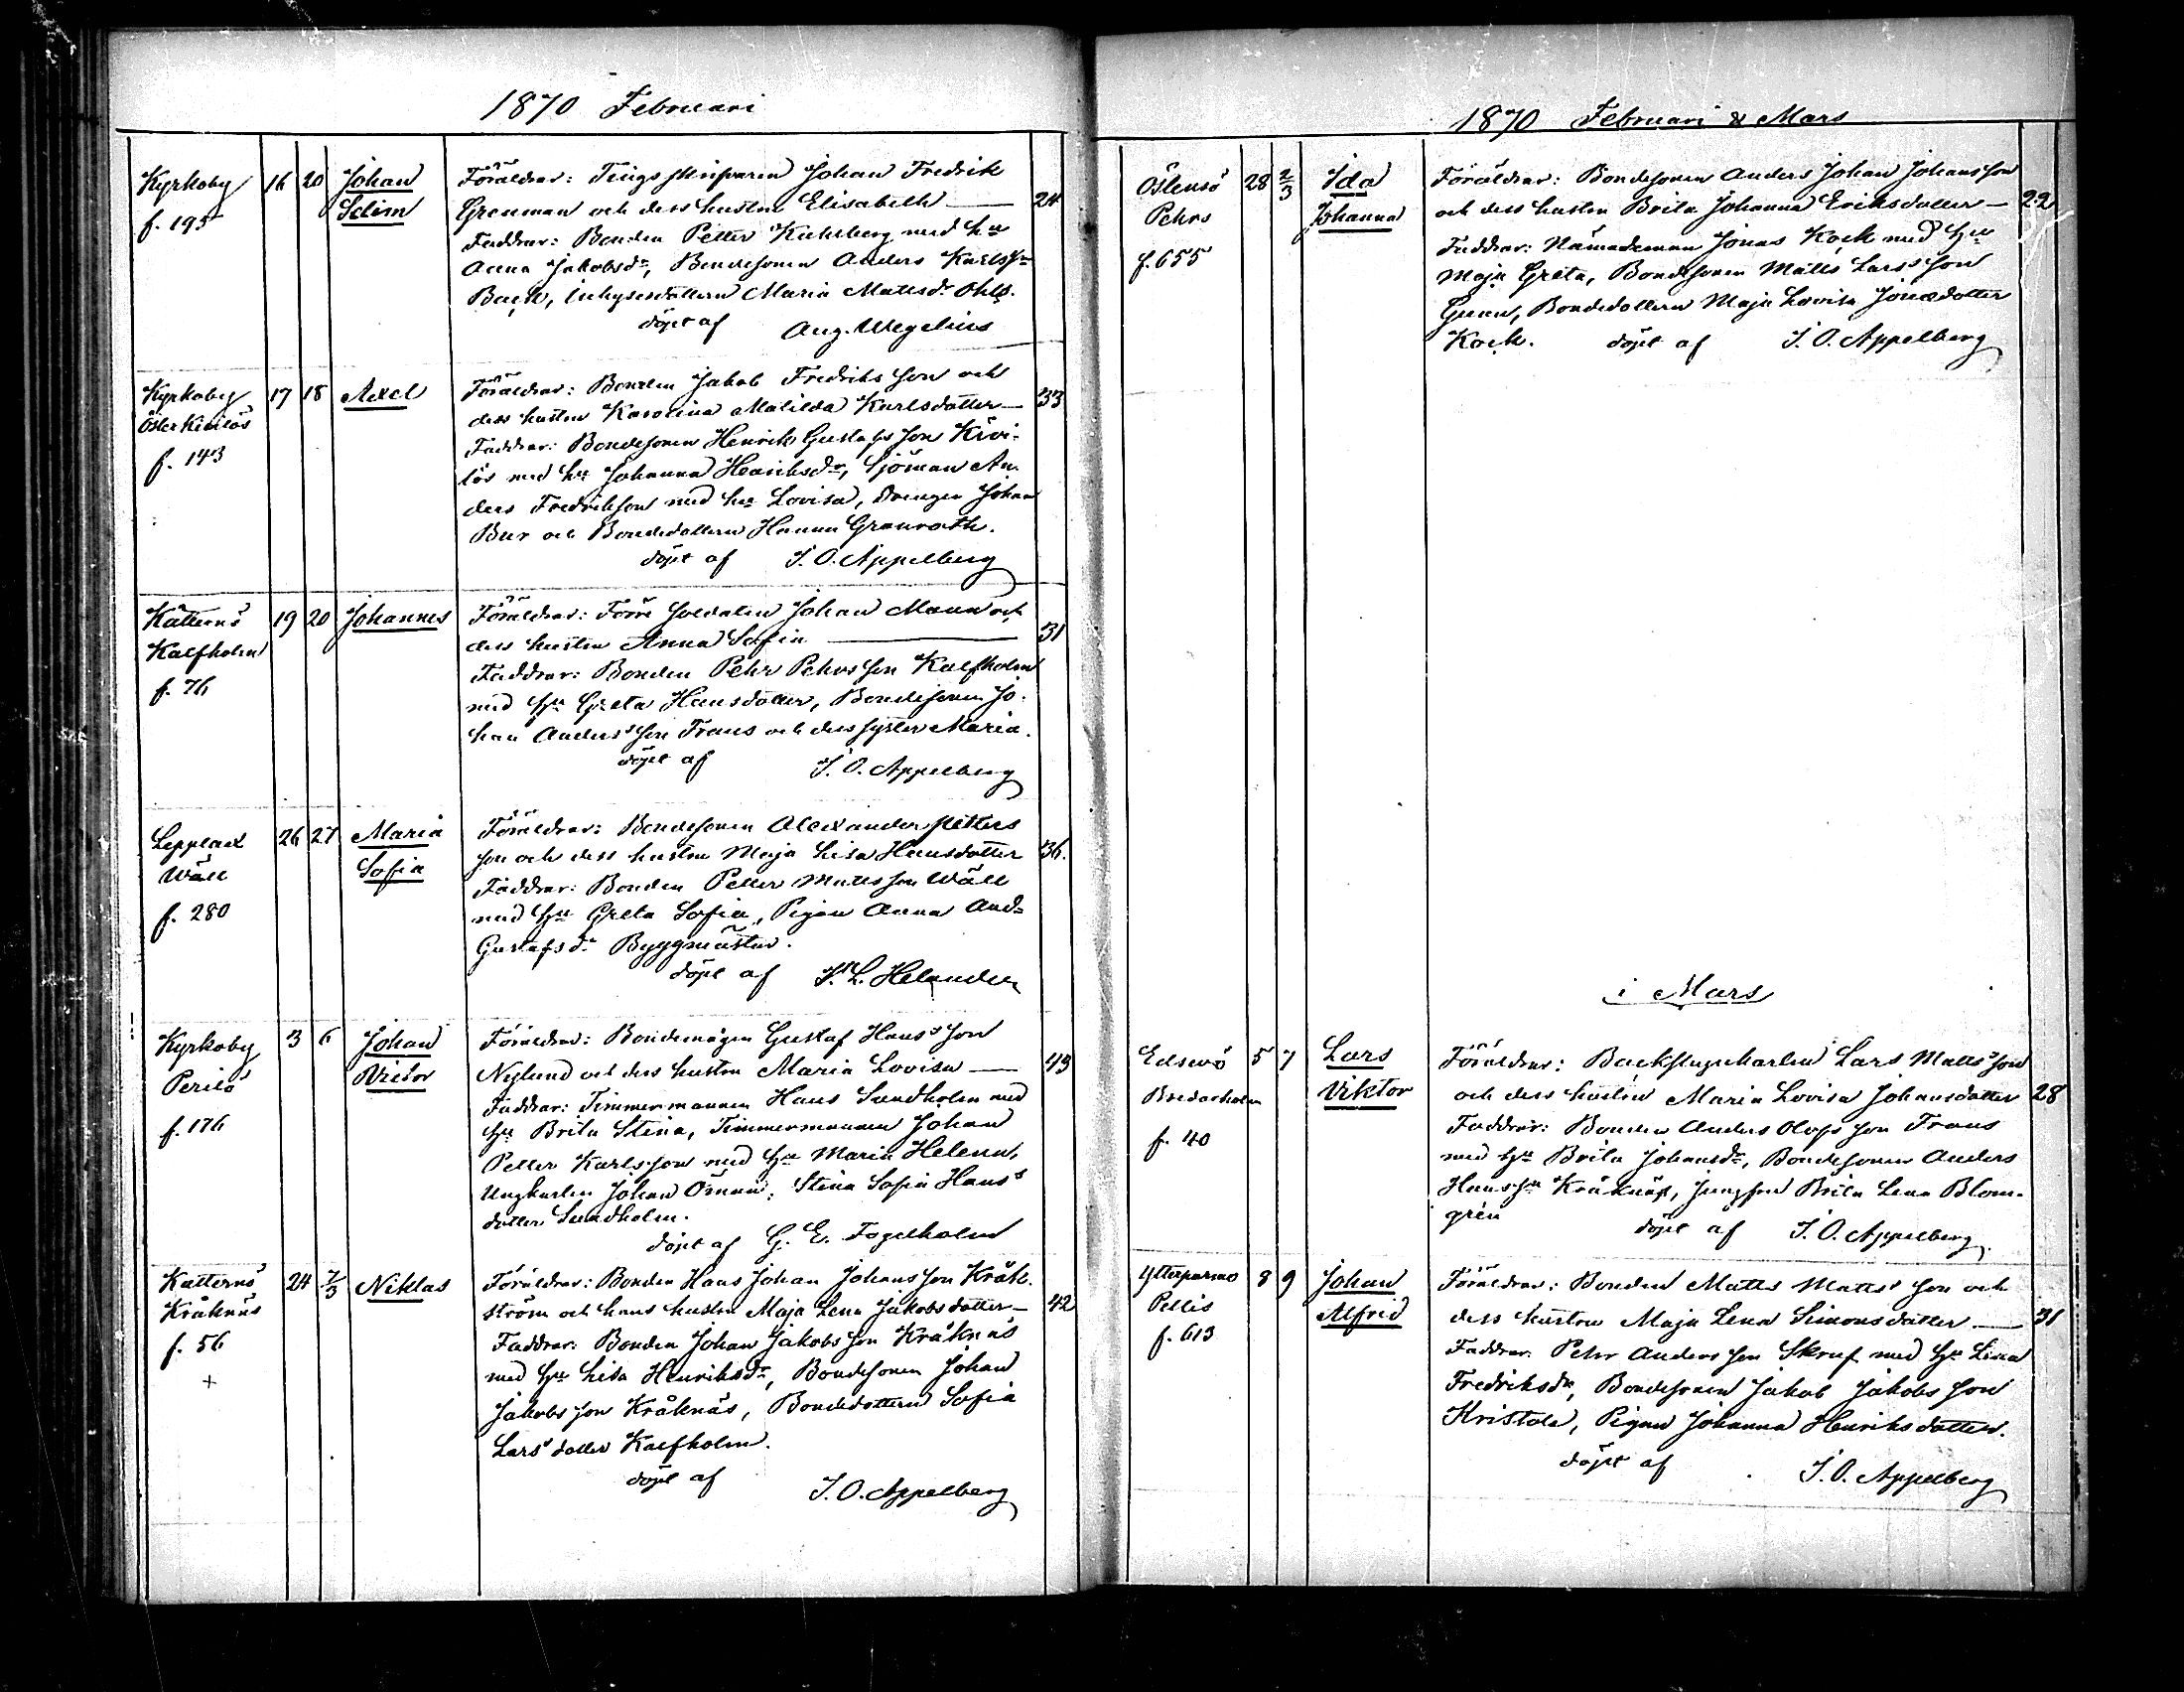 1870 Februari
Kyrkoby
f. 195
16 20
Johan
Selim
Föräldrar: Tingsskrifvaren Johan Fredrik
Grenman och dess hustru Elisabeth — 24
Faddrar: Bonden Petter Kuhlberg med hu
Anna Jakobsdr, Bondesonen Anders Karlssn
Back, Inhysesdottern Maria Mattsdr Ohls.
döpt af Aug. Wegelius
Kyrkoby
Öster Kivilös
f. 143
17 18
Axel
Föräldrar: Bonden Jakob Fredriks son och
dess hustru Karolina Matilda Karlsdotter — 33
Faddrar: Bondesonen Henrik Gustafs son Kivi-
lös med hu Johanna Henriksdr, Sjöman An-
ders Fredrikson med hu Lovisa, Drengen Johan
Bur och Bondedottern Hanna Granroth.
döpt af J. O. Appelberg
Katternö
Kalfholm
f. 76
19 20
Johannes
Föräldrar: Förre soldaten Johan Mann och
dess hustru Anna Sofia — 31
Faddrar: Bonden Pehr Pehrs son Kalfholm
med hu Greta Hansdotter, Bondesonen Jo-
han Anders son Frans och dess syster Maria.
döpt af J. O. Appelberg
Lepplax
Wäll
f. 280
26 27
Maria
Sofia
Föräldrar: Bondesonen Alexander Petters
son och dess hustru Maja Lisa Hansdotter 36.
Faddrar: Bonden Petter Matts son Wäll
med hu Greta Sofia, Pigan Anna And-
Gustafsdr Byggmästar.
döpt af K. L. Helander
Kyrkoby
Perilö
f. 176
3 6
Johan
Victor
Föräldrar: Bondemågen Gustaf Hans son
Nylund och dess hustru Maria Lovisa — 43
Faddrar: Timmermannen Hans Sundholm med
hu Brita Stina, Timmermannen Johan
Petter Karlsson med hu Maria Helena,
Ungkarlen Johan Östman, Stina Sofia Hans
dotter Sundholm.
döpt af G. E. Fogelholm
Katternö
Kråknäs
f. 56
+
24 2/3
Niklas
Föräldrar: Bonden Hans Johan Johans son Kråk-
ström och hans hustru Maja Lena Jakobsdotter — 42
Faddrar: Bonden Johan Jakobs son Kråknäs
med hu Lisa Henriksdr, Bondesonen Johan
Jakobs son Kråknäs, Bondedottern Sofia
Lars dotter Kalfholm.
döpt af J. O. Appelberg
1870 Februari & Mars
Östensö
Pehrs
f. 655
28 2/3
Ida
Johanna
Föräldrar: Bondesonen Anders Johan Johansson
och dess hustru Brita Johanna Eriksdotter — 22
Faddrar: Nämndeman Jonas Kock med hu
Maja Greta, Bondesonen Matts Lars son
Gunn, Bondedottern Maja Lovisa Jonasdotter
Kock. döpt af J. O. Appelberg
i Mars
Edsevö
Bredarholm
f. 40
5 7
Lars
Viktor
Föräldrar: Backstugukarlen Lars Matts son
och dess hustru Maria Lovisa Johansdotter 28
Faddrar: Bonden Anders Olofs son Frans
med hu Brita Johansdr, Bondesonen Anders
Hanssn Kråknäs, Jungfru Brita Lena Blom-
gren döpt af J. O. Appelberg
Ytterpurmo
Pellis
f. 613
8 9
Johan
Alfred
Föräldrar: Bonden Matts Matts son och
dess hustru Maja Lena Simonsdotter — 31
Faddrar: Pehr Anders son Skruf med hu Lena
Fredriksdr, Bondesonen Jakob Jakobs son
Kristola, Pigan Johanna Henriksdotter.
döpt af J. O. Appelberg